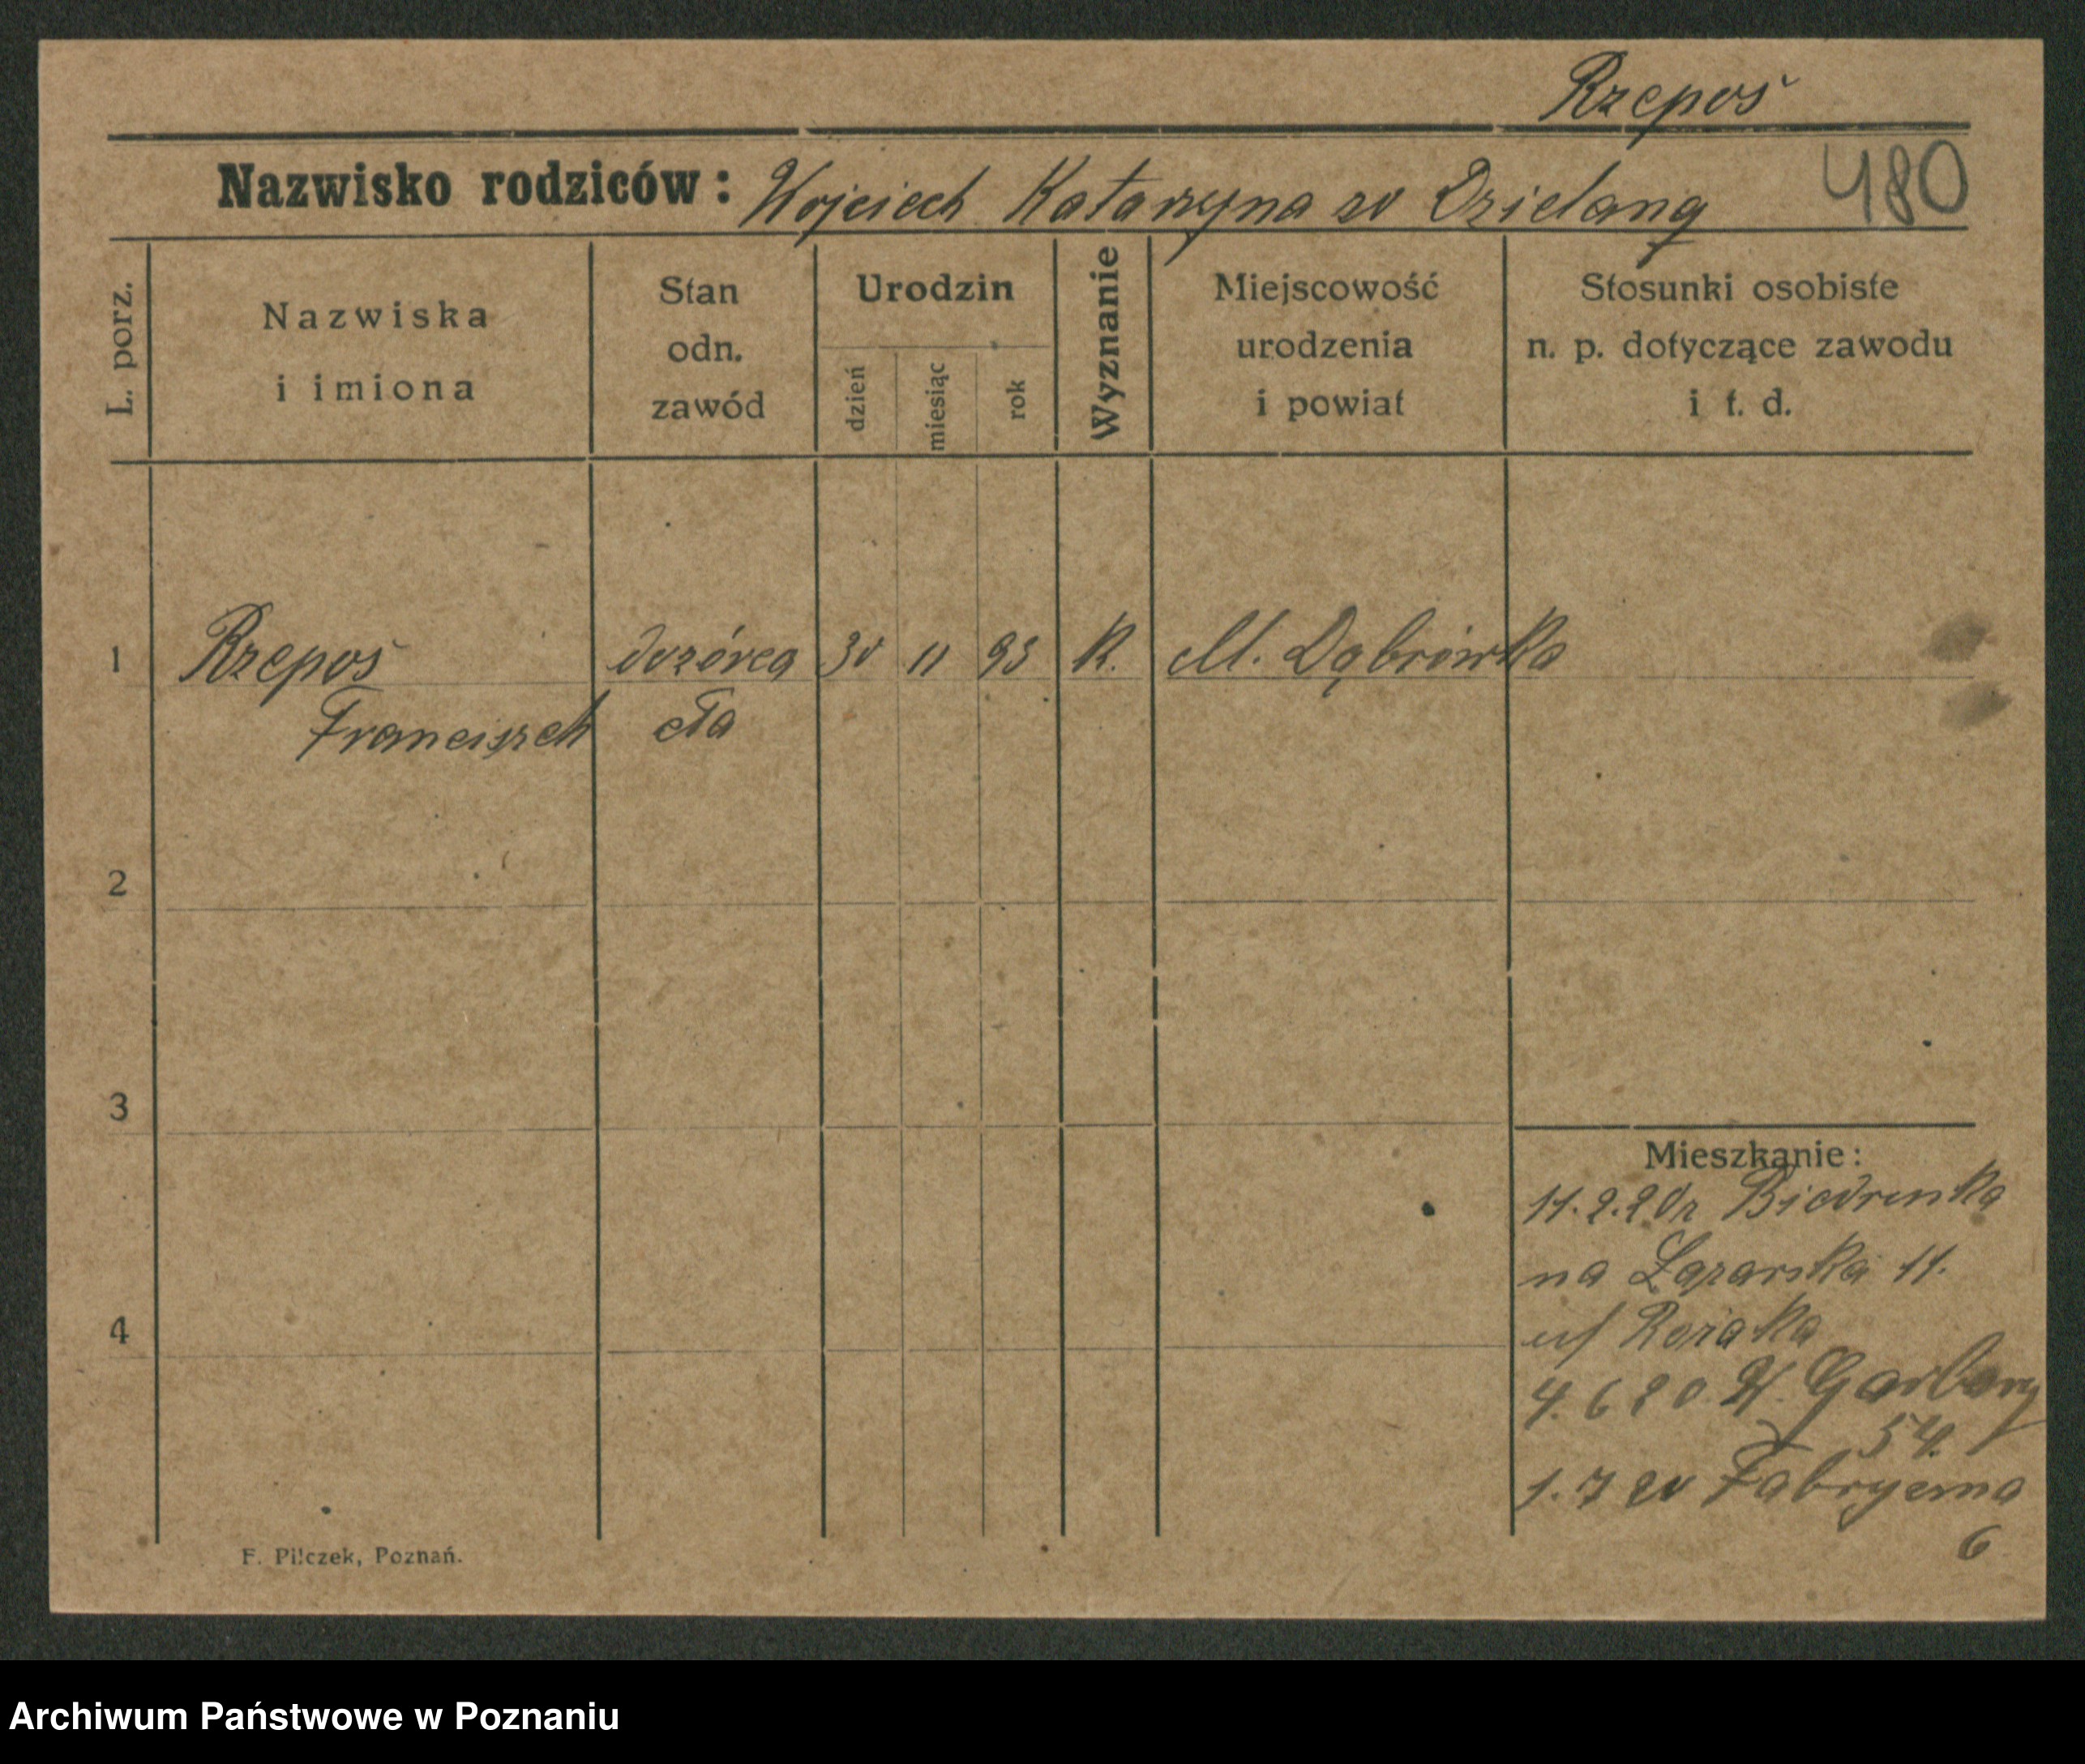 Rzepoś
Nazwisko rodziców: Wojciech Katarzyna zd Dzielang
480
L. porz.
Nazwiska i imiona
Stan odn. zawód
Urodzin
dzień
miesiąc
rok
Wyznanie
Miejscowość urodzenia i powiat
Stosunki osobiste n. p. dotyczące zawodu i t. d.
1 Rzepoś dozórca 30 11 93 K. M. Dąbrówka
Franciszek cła
2
3
4
Mieszkanie:
11.2.20r
na Łazarska 11.
4.6 20. W. Garbary
54.
1.7 20 Fabryczna
6
F. Pilczek, Poznań.
Archiwum Państwowe w Poznaniu